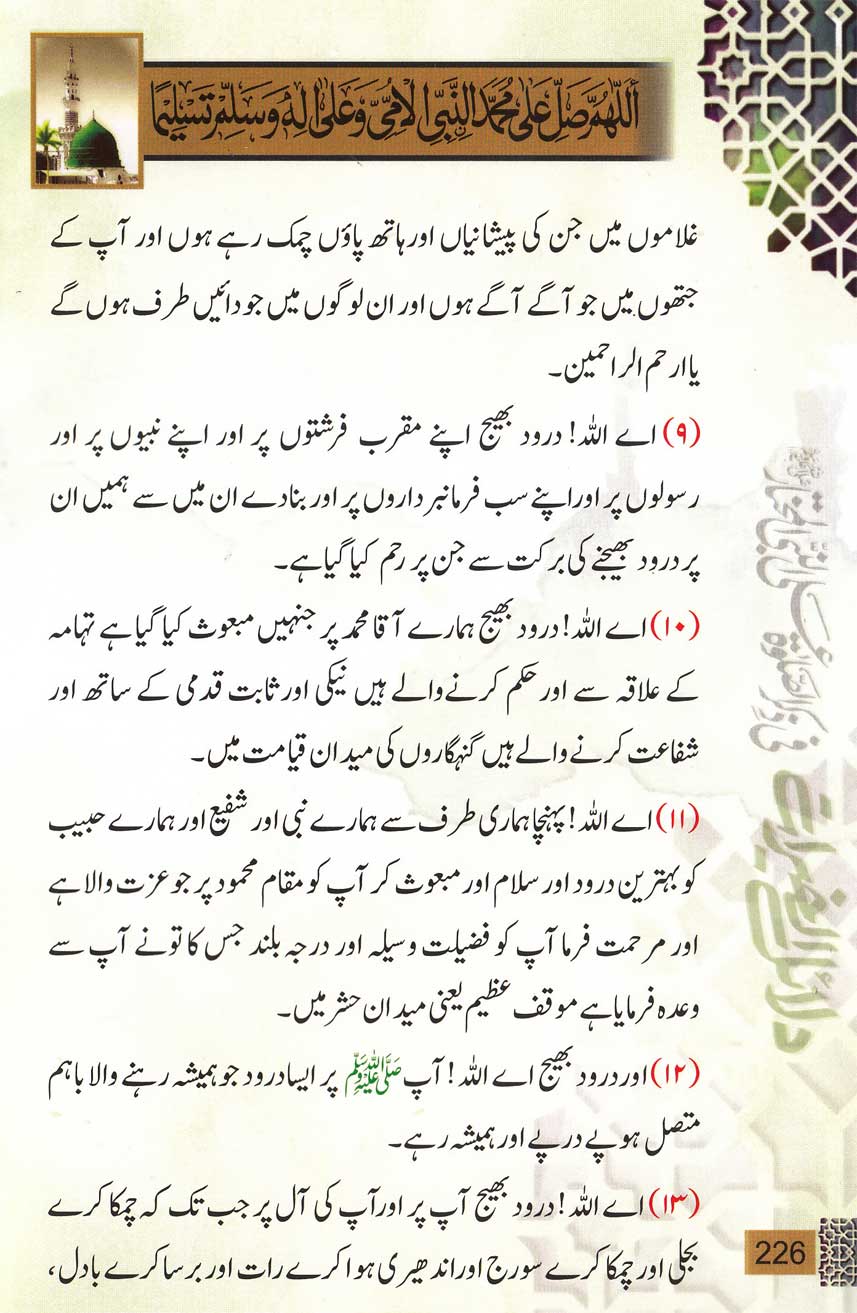 أَللّٰهُمَّ صَلِّ عَلٰى مُحَمَّدِ النَّبِيِّ الْاُمِّيِّ وَعَلٰى اٰلِهٖ وَسَلِّمْ تَسْلِيْمًا
غلاموں میں جن کی پیشانیاں اور ہاتھ پاؤں چمک رہے ہوں اور آپ کے
جتھوں میں جو آگے آگے ہوں اور ان لوگوں میں جو دائیں طرف ہوں گے
یا ارحم الراحمین۔
(۹) اے اللہ! درود بھیج اپنے مقرب فرشتوں پر اور اپنے نبیوں پر اور
رسولوں پر اور اپنے سب فرمانبرداروں پر اور بنا دے ان میں سے ہمیں ان
پر درود بھیجنے کی برکت سے جن پر رحم کیا گیا ہے۔
(۱۰) اے اللہ! درود بھیج ہمارے آقا محمد پر جنہیں مبعوث کیا گیا ہے تہامہ
کے علاقہ سے اور حکم کرنے والے ہیں نیکی اور ثابت قدمی کے ساتھ اور
شفاعت کرنے والے ہیں گنہگاروں کی میدان قیامت میں۔
(۱۱) اے اللہ! پہنچا ہماری طرف سے ہمارے نبی اور شفیع اور ہمارے حبیب
کو بہترین درود اور سلام اور مبعوث کر آپ کو مقام محمود پر جو عزت والا ہے
اور مرحمت فرما آپ کو فضیلت وسیلہ اور درجہ بلند جس کا تونے آپ سے
وعدہ فرمایا ہے موقف عظیم یعنی میدان حشر میں۔
(۱۲) اور درود بھیج اے اللہ! آپ ﷺ پر ایسا درود جو ہمیشہ رہنے والا باہم
متصل ہو پے درپے اور ہمیشہ رہے۔
(۱۳) اے اللہ! درود بھیج آپ پر اور آپ کی آل پر جب تک کہ چمکا کرے
بجلی اور چمکا کرے سورج اور اندھیری ہوا کرے رات اور برسا کرے بادل،
دلائل الخیرات
226